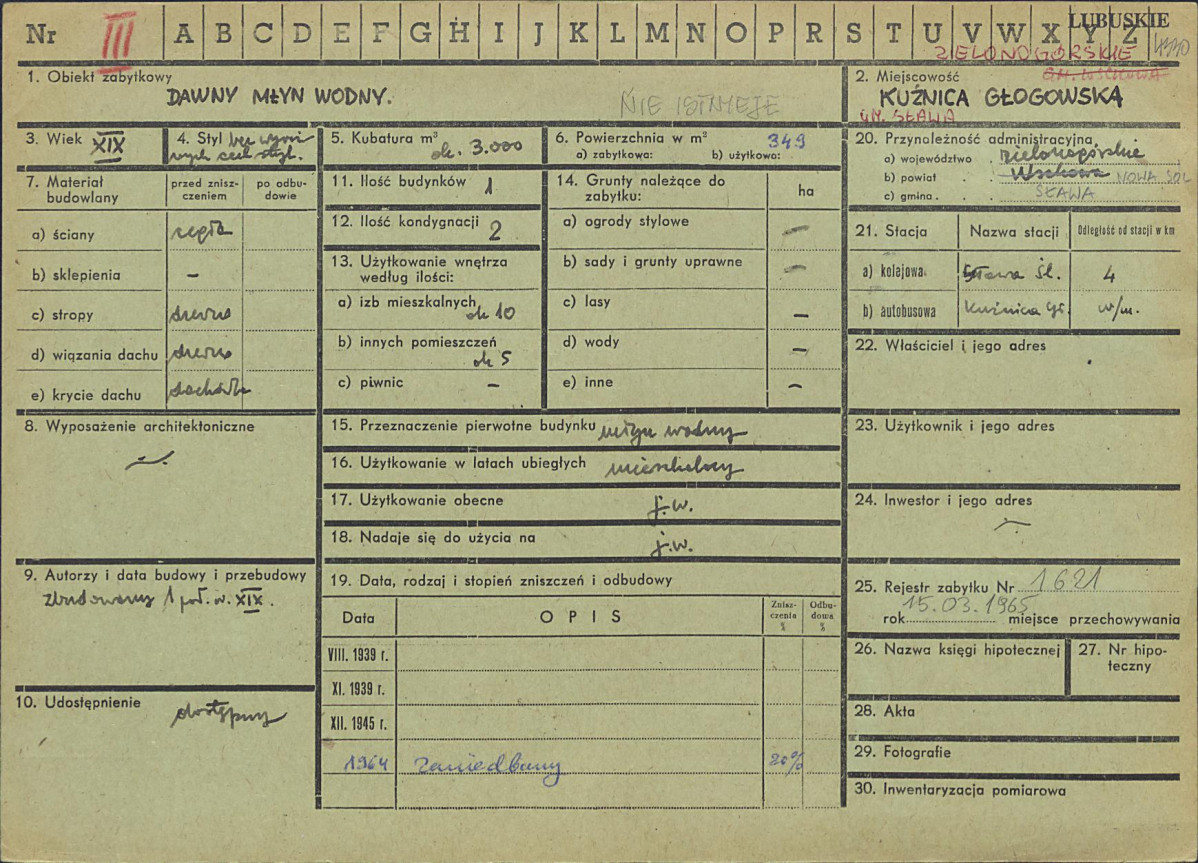 LUBUSKIE
Nr III A B C D E F G H I J K L M N O P R S T U V W X Y Z 4330
ZIELONOGÓRSKIE
GM. WSCHOWA
1. Obiekt zabytkowy
DAWNY MŁYN WODNY.
NIE ISTNIEJE
2. Miejscowość
KUŹNICA GŁOGOWSKA
GM. SŁAWA
3. Wiek XIX
4. Styl bez wyraź-
nych cech styl.
5. Kubatura m³
ok. 3.000
6. Powierzchnia w m² 349
a) zabytkowa: b) użytkowa:
7. Materiał budowlany
przed znisz-
czeniem
po odbu-
dowie
a) ściany cegła
b) sklepienia –
c) stropy drewno
d) wiązania dachu drewno
e) krycie dachu dachówka
8. Wyposażenie architektoniczne
9. Autorzy i data budowy i przebudowy
zbudowany 1 poł. w. XIX.
10. Udostępnienie
dostępny
11. Ilość budynków 1
12. Ilość kondygnacji 2
13. Użytkowanie wnętrza
według ilości:
a) izb mieszkalnych
ok 10
b) innych pomieszczeń
ok 5
c) piwnic –
14. Grunty należące do
zabytku:
ha
a) ogrody stylowe –
b) sady i grunty uprawne –
c) lasy –
d) wody –
e) inne –
15. Przeznaczenie pierwotne budynku młyn wodny
16. Użytkowanie w latach ubiegłych mieszkalny
17. Użytkowanie obecne j.w.
18. Nadaje się do użycia na j.w.
19. Data, rodzaj i stopień zniszczeń i odbudowy
Data OPIS Znisz-
czenia
%
Odbu-
dowa
%
VIII. 1939 r.
XI. 1939 r.
XII. 1945 r.
1964 zaniedbany 20%
20. Przynależność administracyjna
a) województwo zielonogórskie
b) powiat Wschowa NOWA SÓL
c) gmina SŁAWA
21. Stacja Nazwa stacji Odległość od stacji w km
a) kolejowa Sława Śl. 4
b) autobusowa Kuźnica Gł. w/m.
22. Właściciel i jego adres
23. Użytkownik i jego adres
24. Inwestor i jego adres
25. Rejestr zabytku Nr 1621
15.03.1965
rok miejsce przechowywania
26. Nazwa księgi hipotecznej
27. Nr hipo-
teczny
28. Akta
29. Fotografie
30. Inwentaryzacja pomiarowa